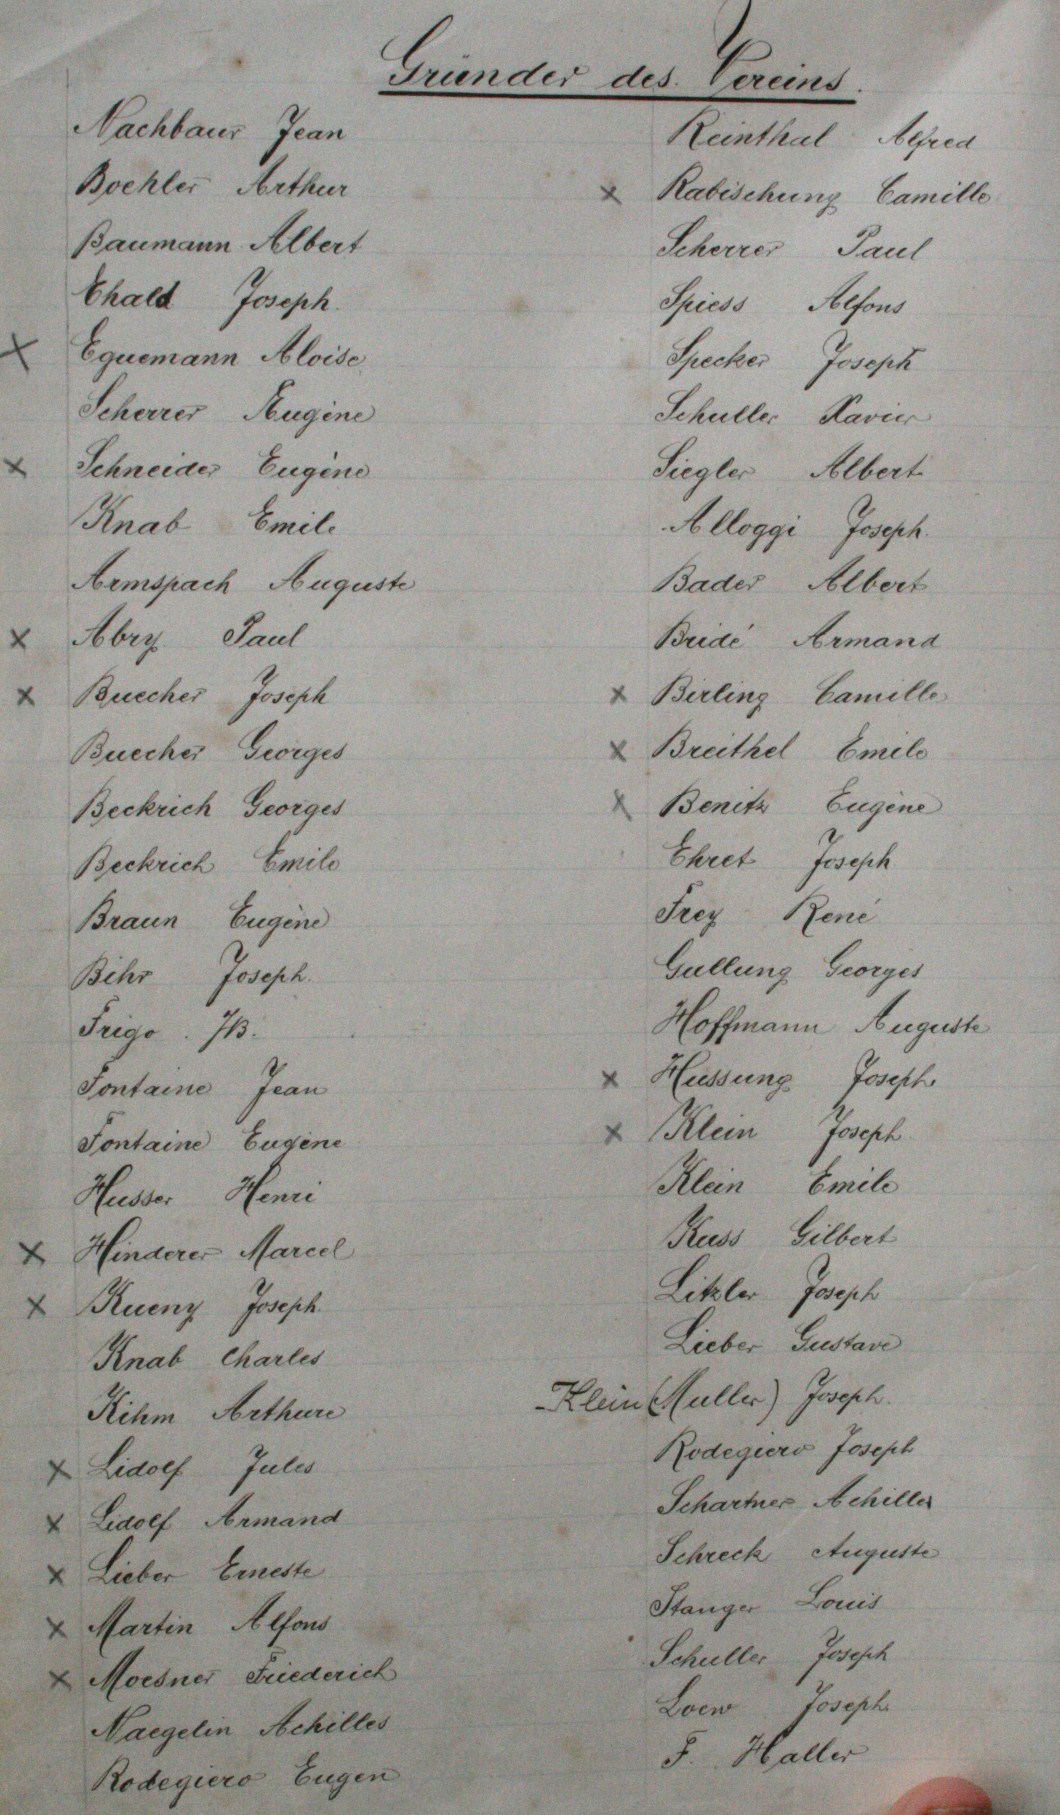 Gründer des Vereins.
Nachbaur Jean
Boehler Arthur
Baumann Albert
Ehald Joseph.
x Eguemann Aloise
Scherrer Eugène
x Schneider Eugène
Knab Emile
Armspach Auguste
x Abry Paul
x Buecher Joseph
Buecher Georges
Beckrich Georges
Beckrich Emile
Braun Eugène
Bihr Joseph.
Frigo. JB.
Fontaine Jean
Fontaine Eugène
Husser Henri
x Hinderer Marcel
x Kueny Joseph.
Knab Charles
Kihm Arthure
x Lidolf Jules
x Lidolf Armand
x Lieber Erneste
x Martin Alfons
x Moesner Friederich
Naegelin Achilles
Rodegiero Eugen
Reinthal Alfred
x Rabischung Camille
Scherrer Paul
Spiess Alfons
Specker Joseph
Schuller Xavier
Siegler Albert
Alloggi Joseph.
Bader Albert
Bridé Armand
x Birling Camille
x Breithel Emile
x Benitz Eugène
Ehret Joseph
Frey René
Gullung Georges
Hoffmann Auguste
x Hussung Joseph.
x Klein Joseph
Klein Emile
Kuss Gilbert
Litzler Joseph
Lieber Gustave
Klein (Muller) Joseph.
Rodegiero Joseph
Schartner Achilles
Schreck Auguste
Stanger Louis
Schuller Joseph
Loew Joseph.
F. Haller